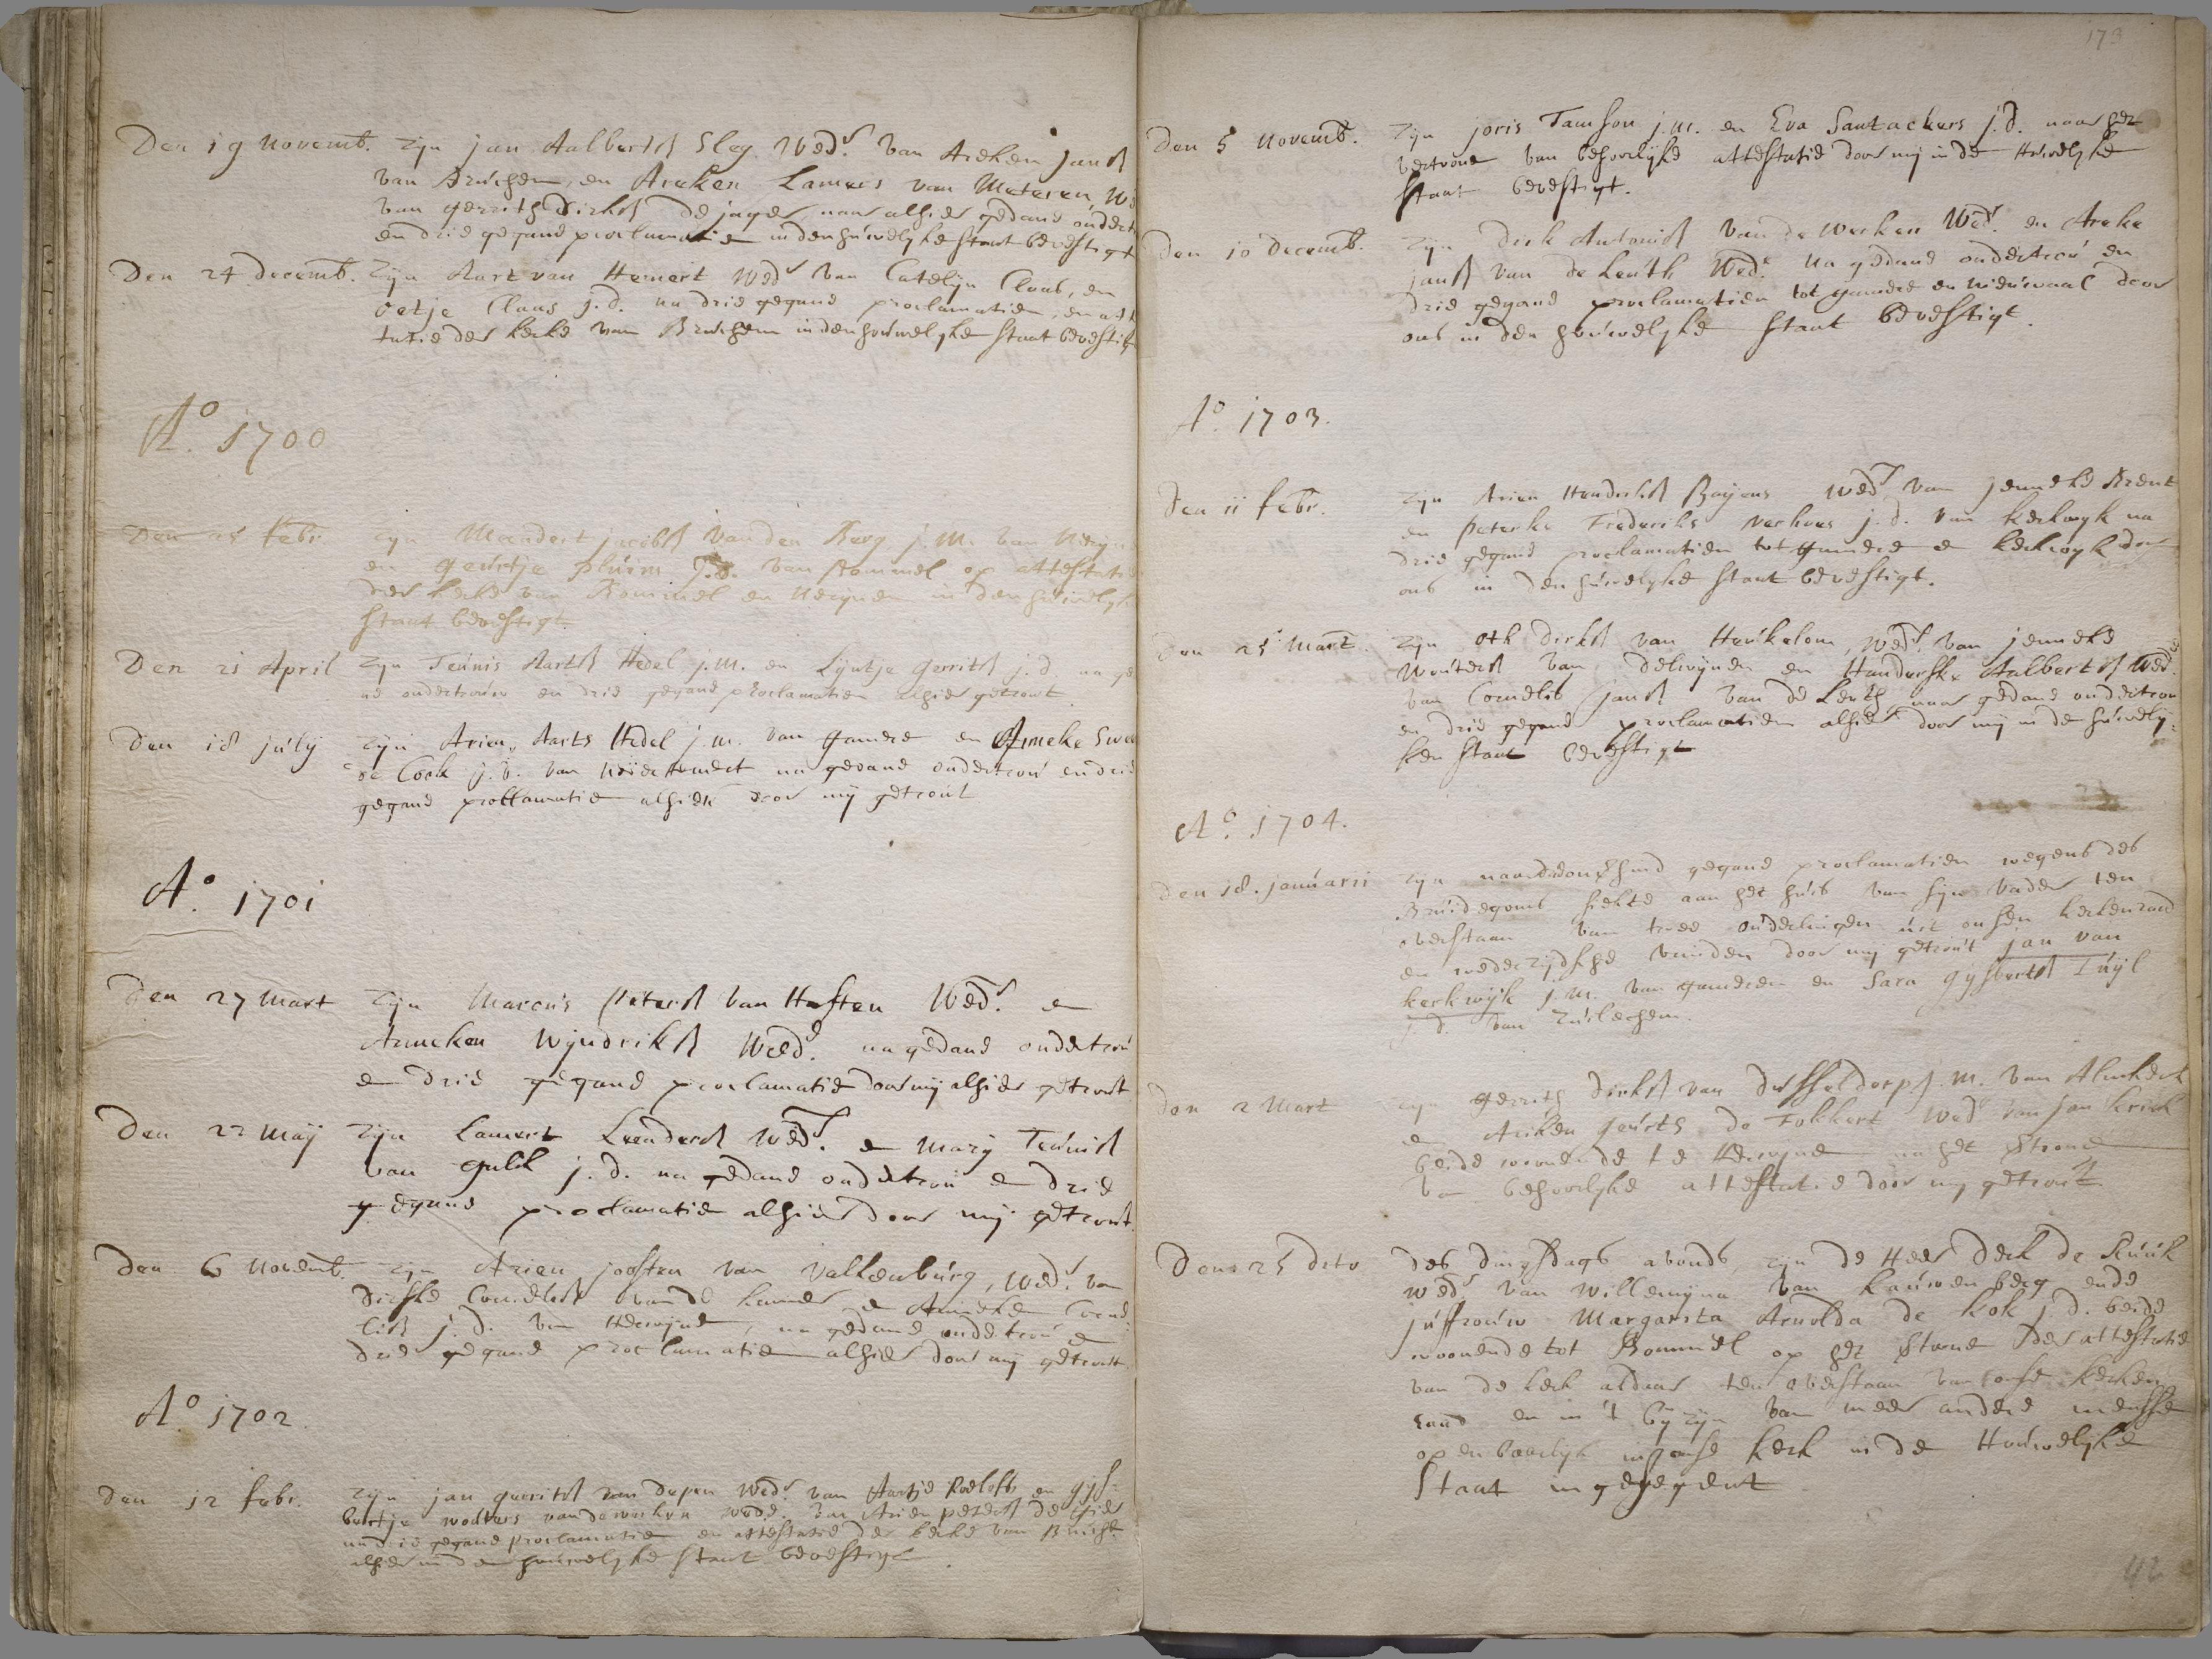 Den 19 novemb. Zijn jan Aalbertsz Sleg. Wedr. van Areken jansz
van Bruchem, en Areken Lamers van Meteren, We
van gerrith Dirksz de jager, naar alhier gedane ondert
en drie gegane proclamatien in den huwelyke staat bevestigt
Den 24 decemb. Zijn Aart van Hemert Wedr van Catelijn Claas, en
oetje Claas j.d. na drie gegane proclamatien, en att
tatie der kerke van Bruchem in den houwelyke staat bevestigt
Ao. 1700
Den 25 febr. Zijn Meendert jacobsz van den Berg j.m. van Nerijne
en geurtje pluim j.d. van Bommel op attestatie
der kerke van Bommel en Nerijnen in den huwelyke
staat bevestigt.
Den 21 April Zijn Teunis Aartsz Hedel j.m. en Lijntje gerritsz j.d. na ge
ne ondertrouw en drie gegane proclamatien alhier getrout
Den 18 july Zijn Arien Aarts Hedel j.m. van gamere en Anneke Swee
de Cock j.d. van Neder Hemert na gedane ondertrou en drie
gegane proclamatie alhier door mij getrout
Ao. 1701
Den 27 Mart Zijn Marcus petersz van Haften Wedr. e
Anneken Wijndriksz Wede. na gedane ondertrou
e drie gegane proclamatie door mij alhier getrout
Den 22 Maij Zijn Lamert Leendersz Wedr. e Marij Teunisz
van gulik j.d. na gedane ondertrou e drie
gegane proclamatie alhier door mij getrout.
Den 6 novemb. Zijn Arien joosten van Valkenburg, Wedr. van
Dirske Cornelisz van de kamer e Anneke Corne
lisz j.d. van Herwijne, na gedane ondertrou e
drie gegane proclamatie alhier door mij getrout
Ao. 1702.
Den 12 febr. Zijn jan gerritsz van Wedr. van Aartje Roelofs en gijs-
bertje wolters van de werken wede. van Arien petersz de
na drie gegane proclamatie en attestatie der kerke van Bruch.
alhier in den houwelyke staat bevestigt.
173
Den 5 Novemb. Zijn joris Tamson j.m. en Eva Santackers j.d. naar het
vertoone van behoorlyke attestatie door mij in de Huwelyke
staat bevestigt.
Den 10 decemb. Zijn Dirk Antonisz van de Werken Wedr. en Areke
jansz van de Leuth Wede. Na gedane ondertrou en
drie gegane proclamatien tot gamere en nieuwaal door
ons in den houwelyke staat bevestigt.
Ao. 1703.
Den 11 febr. Zijn Arien Hendriksz Boijens Wedr van jenneke Arents
en peterke Frederiks verhoes j.d. van kerkwyk na
drie gegane proclamatien tot gamere e kerkwyk door
ons in den huwelyke staat bevestigt.
Den 25 Mart. Zijn Oth Dirksz van Heukelom, Wedr. van jenneke
Woutersz van delwijnen en Handerske Aalbertsz Wede
van Cornelis jansz van de Leuth, naar gedane ondertrou
en drie gegane proclamatien alhier door mij in de huwely-
ken staat bevestigt
Ao. 1704.
Den 18. januarii Zijn gegane proclamatien wegens des
Bruidegoms siekte aan het huis van sijn vader ten
overstaan van twee ouderlingen uit onsen kerkenraad
en wederzijdshe vrinden door mij getrout jan van
kerkwijk j.m. van gameren en Sara gijsbertsz Tuijl
j.d. van Zuilechem.
Den 2 Mart Zijn gerrith Dirksz van Dusseldorp j.m. van Almkerk
e Ariken geurts de Fokkert Wede van jan krick
beide wonende te Herwijne na het
van behoorlyke attestatie door mij getrout
Den 25 dito des dingsdags avonds zijn de Heer Derk de kuuk
wedr. van Willemijna van kauwenberg ende
juffrouw Margareta Arnolda de kok j.d. beide
woonende tot Bommel op het der attestatie
van de kerk aldaar ten overstaan van onse kerken
raad en in 't bij zijn van meer andere mensche
openbaarlyk in onse kerk in de Houwelyke
Staat ingesegent
42